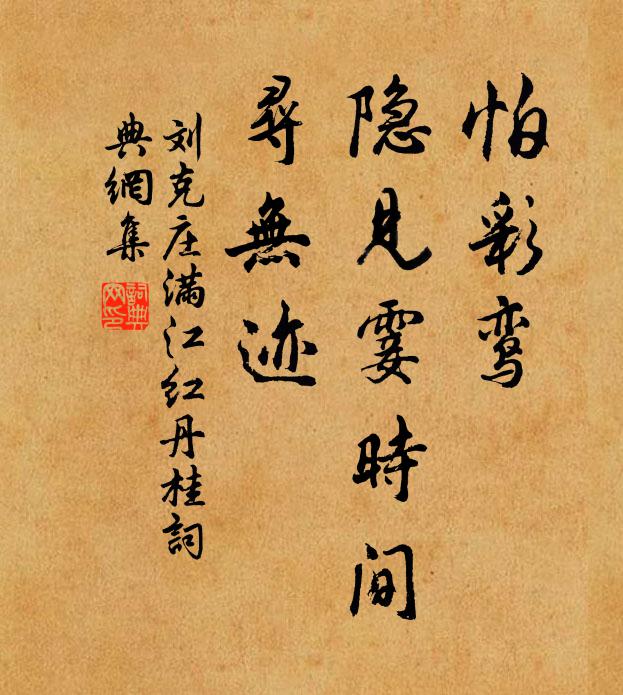 怕彩鸾
隐见霎時间
尋無迹
刘克庄满江红丹桂詞
典網集
詞典網印